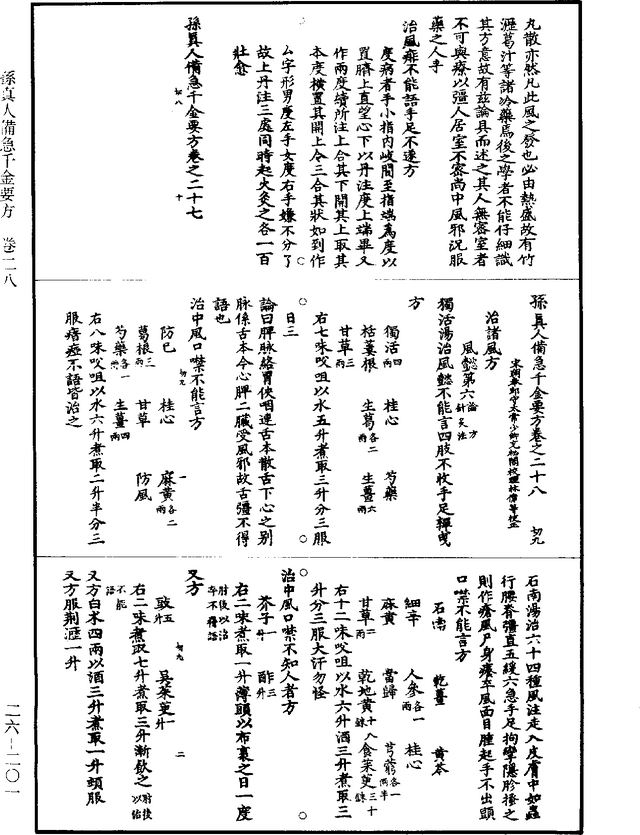 丸散亦然凡此風之發也必由熱盛故有竹
瀝葛汁等諸冷藥焉後之學者不能仔細識
其方意故有茲論具而述之其人無密室者
不可與療以彊人居室不密尚中風邪況服
藥之人乎
治風痱不能語手足不遂方
度病者手小指內歧間至指端為度以
置臍上直望心下以丹注度上端畢又
作兩度續所注上合其下開其上取其
本度橫置其開上令三合其狀如到作
厶字形男度左手女度右手嫌不分了
故上丹注三處同時起火灸之各一百
壯愈
孫真人備急千金要方卷之二十七
切八 十
孫真人備急千金要方卷之二十八 切九
宋朝奉郎守太常少卿充秘閣校理林億等校正
治諸風方
風懿第六 論 方 針灸法
獨活湯治風懿不能言四肢不收手足嚲曳
方
獨活四兩 桂心 芍藥
栝蔞根 生葛各二兩 生薑六兩
甘草三兩
右七味㕮咀以水五升煮取三升分三服
日三
論曰脾脉絡胃俠咽連舌本散舌下心之别
脉係舌本今心脾二臟受風邪故舌彊不得
語也
治中風口噤不能言方
切九 一
防已 桂心 麻黃各二兩
葛根三兩 甘草 防風
芍藥各一兩 生薑四兩
右八味㕮咀以水六升煮取二升半分三
服瘖瘂不語皆治之
石南湯治六十四種風注走入皮膚中如蟲
行腰脊彊直五緩六急手足拘攣隱胗搔之
則作瘡風尸身癢卒風面目腫起手不出頭
口噤不能言方
石南 乾薑 黃芩
細辛 人參各一兩 桂心
麻黃 當歸 芎藭各一兩半
甘草二兩 乾地黃十八銖 食茱萸三十銖
右十二味㕮咀以水六升酒三升煮取三
升分三服大汗勿怪
治中風口噤不知人者方
芥子一升 酢三升
右二味煮取一升薄頭以布裹之日一度
肘後以治卒不得語
又方
切九 二
豉五升 吳茱萸一升
右二味煮取七升煮取三升漸飲之肘後以治不能語
又方白术四兩以酒三升煮取一升頓服
又方服荆瀝一升
孫真人備急千金要方 卷二八
二六-二〇一